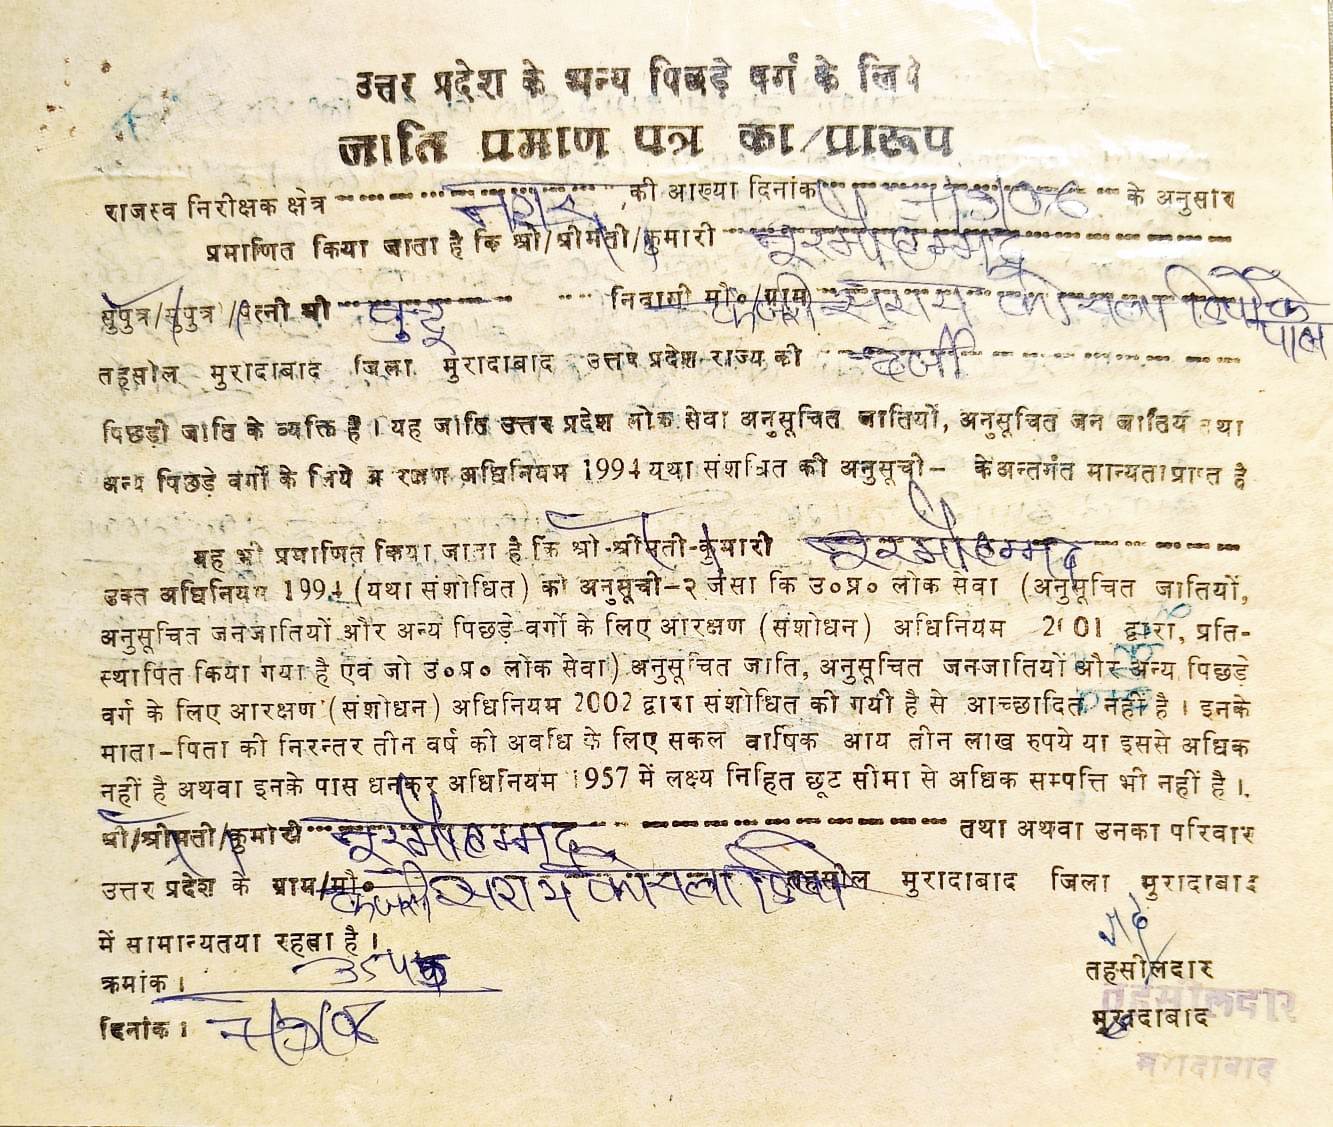 उत्तर प्रदेश के अन्य पिछड़े वर्ग के लिये
जाति प्रमाण पत्र का/प्रारूप
राजस्व निरीक्षक क्षेत्र नगर की आख्या दिनांक के अनुसार
प्रमाणित किया जाता है कि श्री/श्रीमती/कुमारी नूरमोहम्मद
सुपुत्र/सुपुत्री/पत्नी श्री निवासी मौ०/ग्राम सराय
तहसील मुरादाबाद जिला मुरादाबाद उत्तर प्रदेश राज्य की दर्जी
पिछड़ी जाति के व्यक्ति है। यह जाति उत्तर प्रदेश लोक सेवा अनुसूचित जातियों, अनुसूचित जन जातिय तथा
अन्य पिछड़े वर्गों के लिये अधिनियम 1994 यथा की अनुसूची- के अन्तर्गत मान्यता प्राप्त है
यह भी प्रमाणित किया जाता है कि श्री-श्रीमती-कुमारी नूरमोहम्मद
उक्त अधिनियम 1994 (यथा संशोधित) की अनुसूची-२ जैसा कि उ०प्र० लोक सेवा (अनुसूचित जातियों,
अनुसूचित जनजातियों और अन्य पिछड़े-वर्गो के लिए आरक्षण (संशोधन) अधिनियम 2001 द्वारा, प्रति-
स्थापित किया गया है एवं जो उ०प्र० लोक सेवा) अनुसूचित जाति, अनुसूचित जनजातियों और अन्य पिछड़े
वर्ग के लिए आरक्षण (संशोधन) अधिनियम 2002 द्वारा संशोधित की गयी है से आच्छादित नहीं है। इनके
माता-पिता की निरन्तर तीन वर्ष की अवधि के लिए सकल वार्षिक आय तीन लाख रुपये या इससे अधिक
नहीं है अथवा इनके पास धनकर अधिनियम 1957 में लक्ष्य निहित छूट सीमा से अधिक सम्पत्ति भी नहीं है।
श्री/श्रीमती/कुमारी नूरमोहम्मद तथा अथवा उनका परिवार
उत्तर प्रदेश के ग्राम/मौ० सराय तहसील मुरादाबाद जिला मुरादाबाद
में सामान्यतया रहता है।
क्रमांक।
दिनांक।
तहसीलदार
तहसीलदार
मुरादाबाद
मुरादाबाद